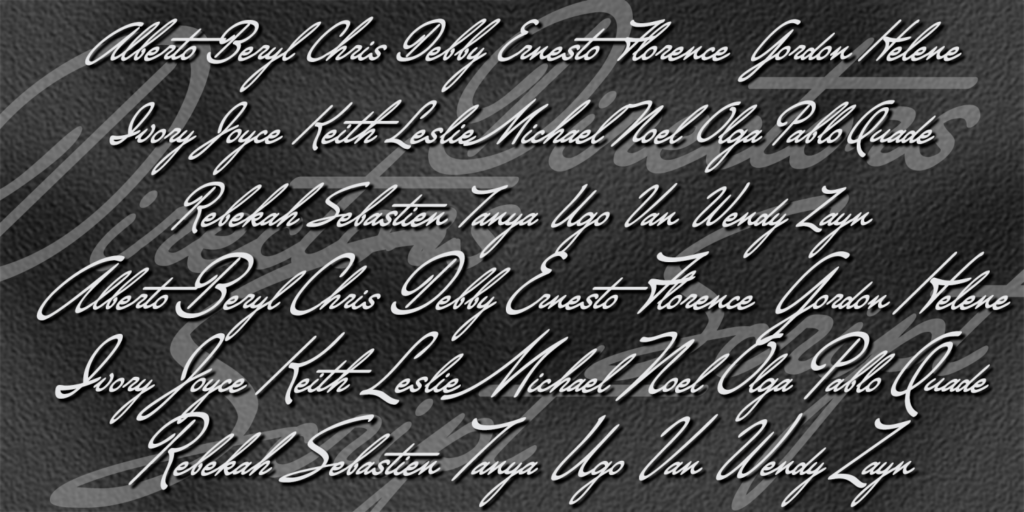 Alberto Beryl Chris Debby Ernesto Florence Gordon Helene
Ivory Joyce Keith Leslie Michael Noel Olga Pablo Quade
Rebekah Sebastien Tanya Ugo Van Wendy Zayn
Alberto Beryl Chris Debby Ernesto Florence Gordon Helene
Ivory Joyce Keith Leslie Michael Noel Olga Pablo Quade
Rebekah Sebastien Tanya Ugo Van Wendy Zayn
Directors
Script
Directors
Script